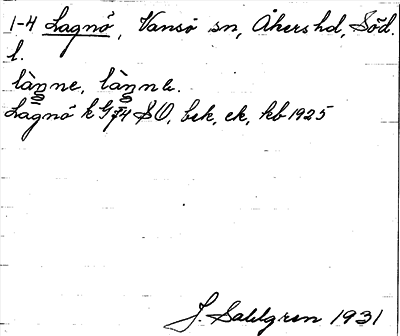 1-4 Lagnö, Vansö sn, Åkers hd, Söd.
l.
làŋne, làŋnɛ.
Lagnö k G74 SO, bek, ek, kb 1925
J. Sahlgren 1931